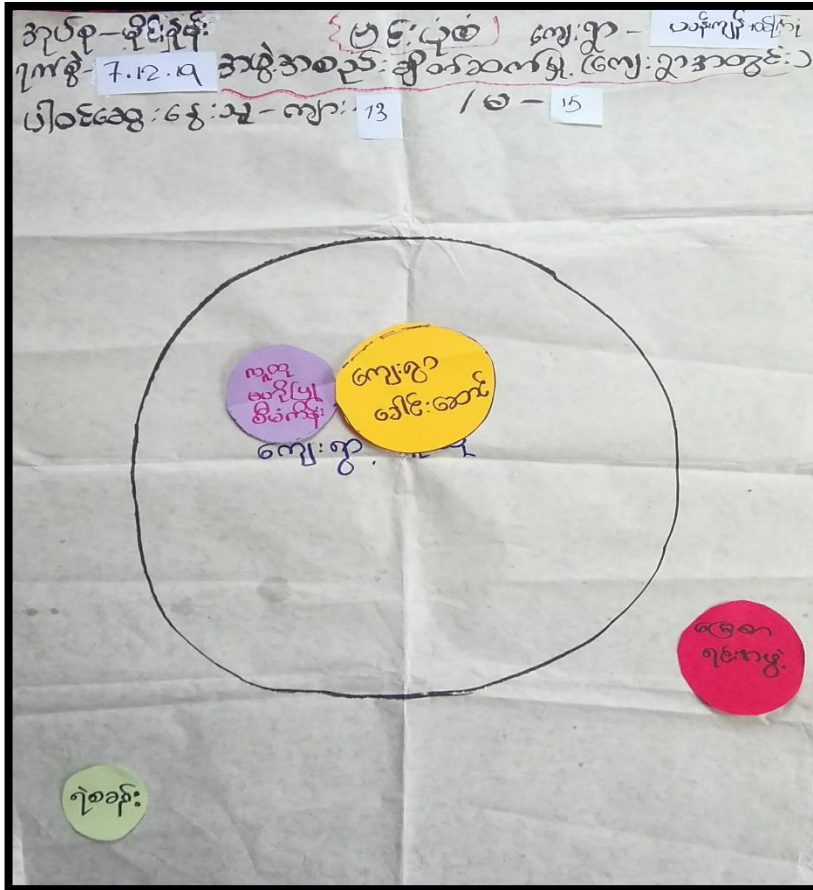 အုပ်စု-မိုင်းနိုင်း {ဗင်းပုံစံ} ကျေးရွာ-
ရက်စွဲ- 7.12.19 အဖွဲ့အစည်းချိတ်ဆက်မှု (ကျေးရွာအတွင်း)
ပါဝင်ဆွေးနွေးသူ-ကျား- 13 / မ - 15
လူထု
ဗဟိုပြု
စီမံကိန်း
ကျေးရွာ
ခေါင်းဆောင်
ကျေးရွာ
မြေစာ
ရင်းအဖွဲ့
ရဲစခန်း